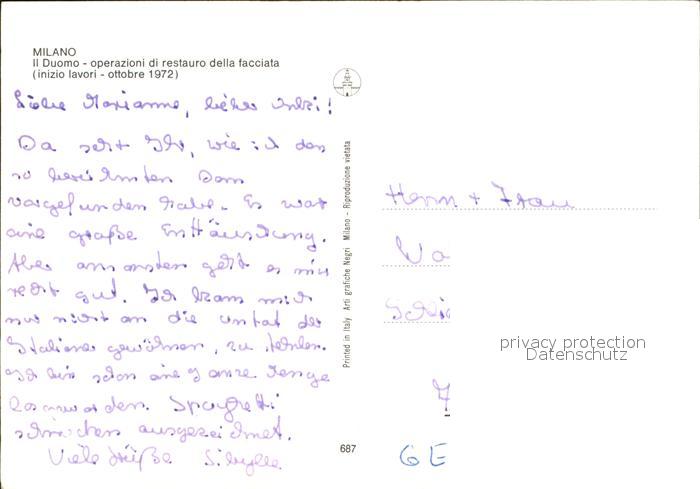 MILANO
Il Duomo - operazioni di restauro della facciata
(inizio lavori - ottobre 1972)
Liebe Marianne, lieber
Da seht Ihr, wie ich den
so berühmten Dom
vorgefunden habe. Es war
eine große Enttäuschung.
Aber ansonsten geht es mir
recht gut. Ich kann mich
nur nicht an die Unart der
Italiener gewöhnen, zu
Ich bin schon eine ganze Menge
losgeworden. Spaghetti
schmecken ausgezeichnet.
Viele Grüße Sibylle
Printed in Italy Arti grafiche Negri Milano - Riproduzione vietata
687
Herrn + Frau
Va
Schl
privacy protection
Datenschutz
7
GE